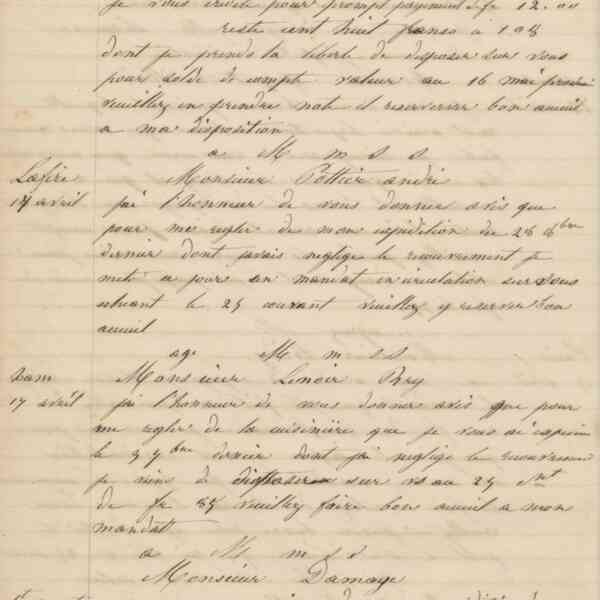 je vous invite pour prompt payement de fr 12.00
reste cent huit francs à 108
dont je prends la liberte de disposer sur vous
pour solde de compte valeur au 16 mai prochain
veuillez en prendre note et reserverer bon acueil
a ma disposition
a M m s s
Lafère Monsieur Pottier andré
17 avril j'ai l'honneur de vous donner avis que
pour me regler de mon expedition du 28 8bre
dernier dont javais neglige le recouvrement je
mets a jour un mandat en circulation sur vous
echéant le 25 courant veuillez y reserver bon
acueil
M m s s
ham Monsieur Lenoir
17 avril j'ai l'honneur de vous donner avis que pour
me regler de la cuisinière que je vous ai expediée
le 7bre dernier dont j'ai neglige le recouvrement
je viens de disposer sur vs au 25 Nt
de fr 85 veuillez faire bon acueil a mon
mandat
a M m s s
Monsieur Damaye